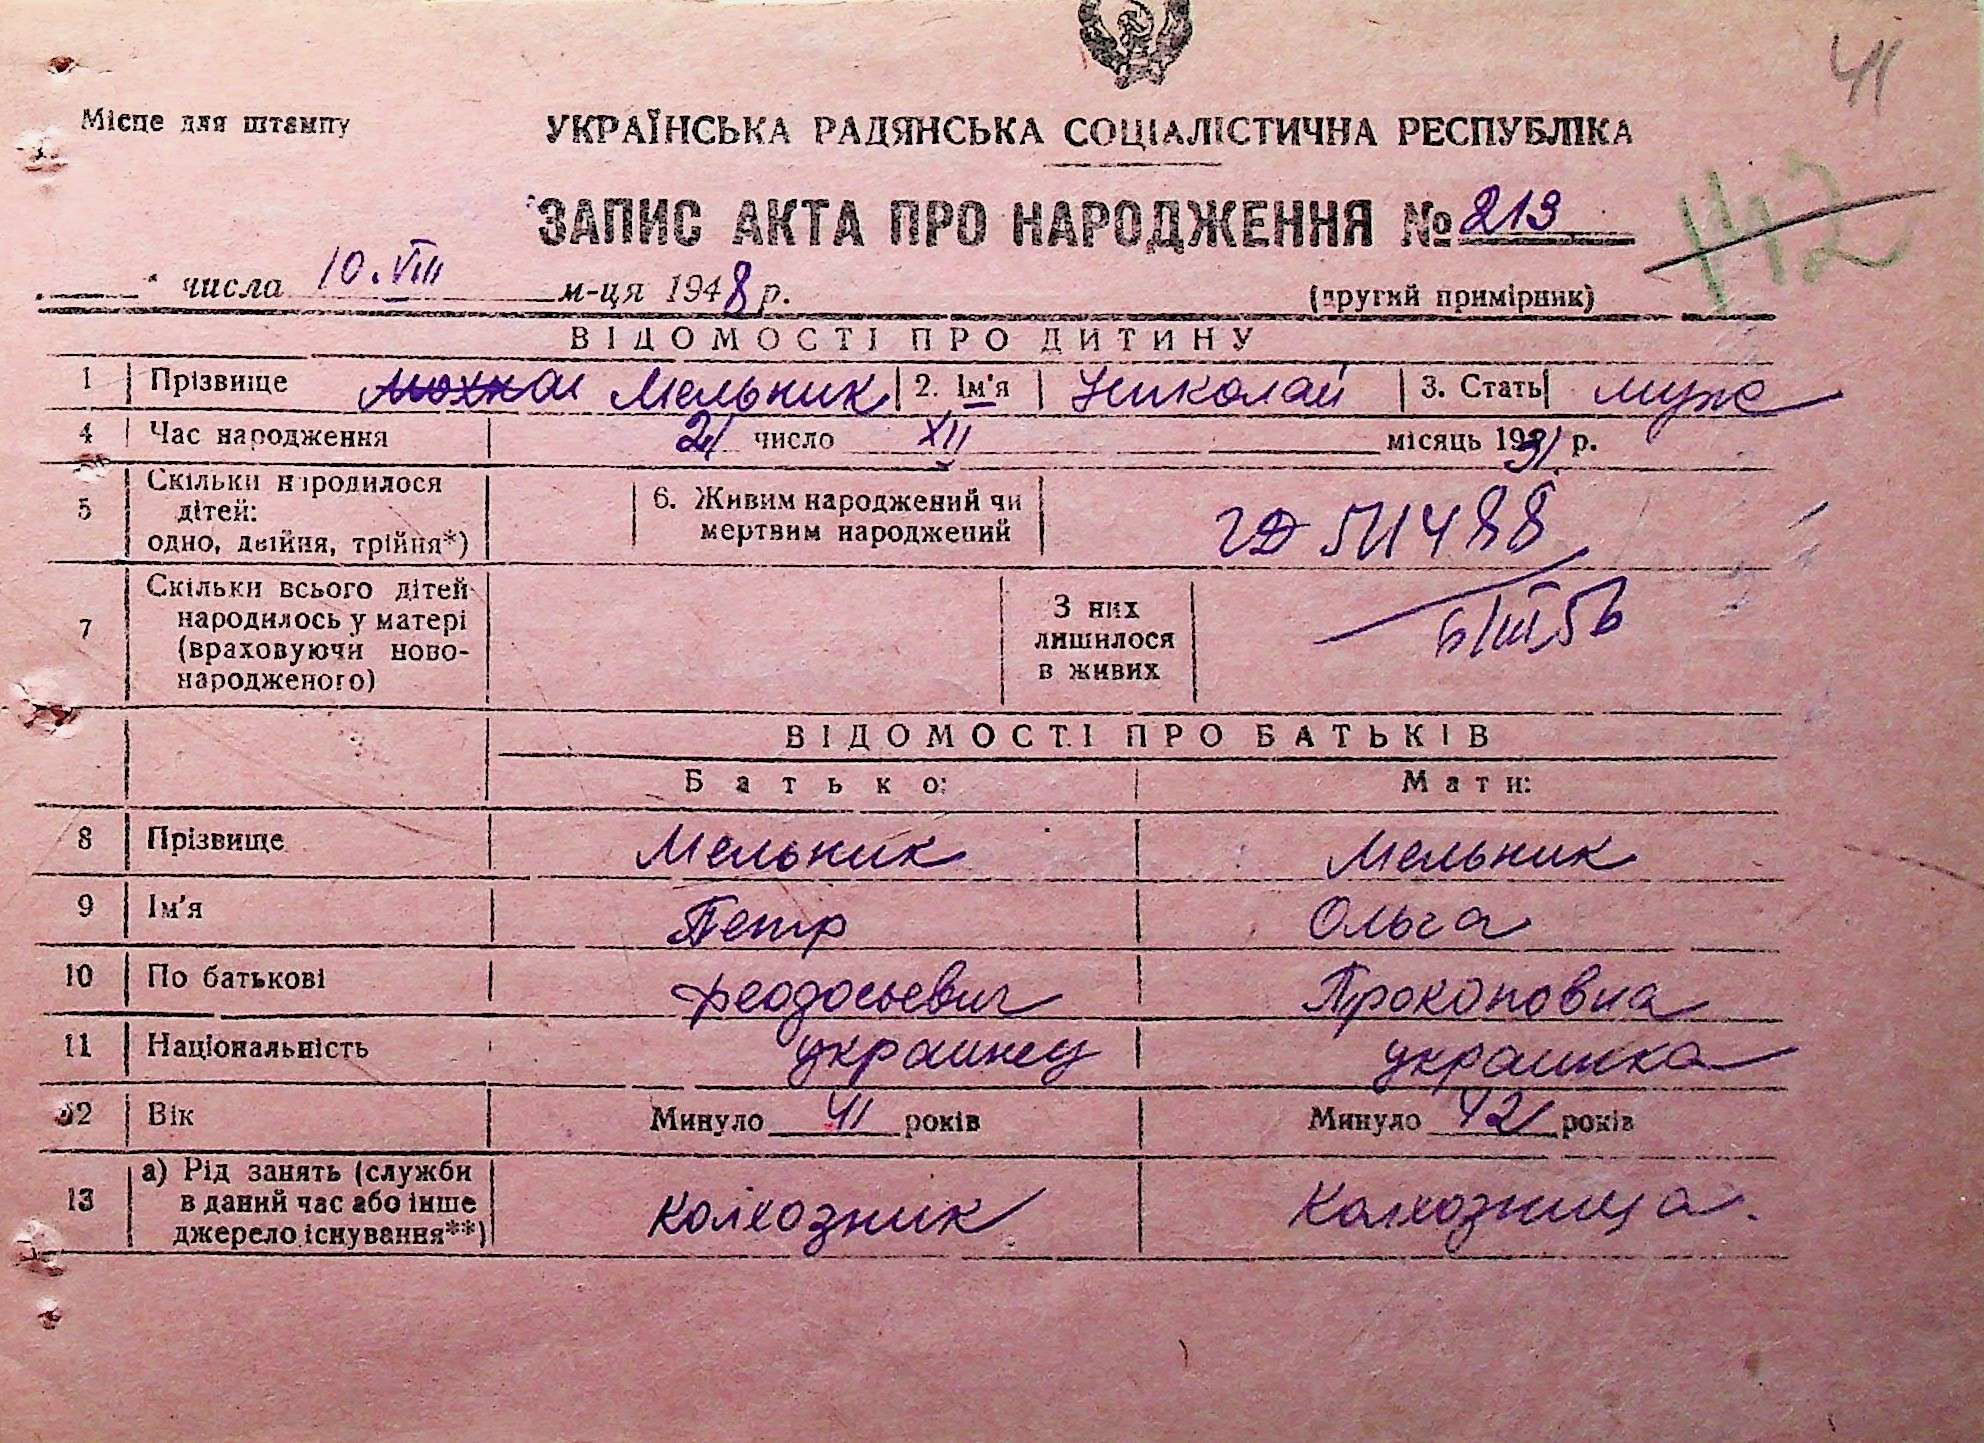 41
Місце для штампу
УКРАЇНСЬКА РАДЯНСЬКА СОЦІАЛІСТИЧНА РЕСПУБЛІКА
ЗАПИС АКТА ПРО НАРОДЖЕННЯ № 213
142
числа 10. VIII м-ця 1948 р.
(другий примірник)
ВІДОМОСТІ ПРО ДИТИНУ
1 Прізвище Мельник 2. Ім'я Николай 3. Стать муж
4 Час народження 21 число XII місяць 1931 р.
5 Скільки народилося дітей: одно, двійня, трійня*) 6. Живим народжений чи мертвим народжений
511488
6/III 56
7 Скільки всього дітей народилось у матері (враховуючи новонародженого) З них лишилося в живих
ВІДОМОСТІ ПРО БАТЬКІВ
Батько: Мати:
8 Прізвище Мельник Мельник
9 Ім'я Петр Ольга
10 По батькові Феодосьевич Прокоповна
11 Національність украинец украинка
12 Вік Минуло 41 років Минуло 42 років
13 а) Рід занять (служби в даний час або інше джерело існування**) колхозник колхозница.